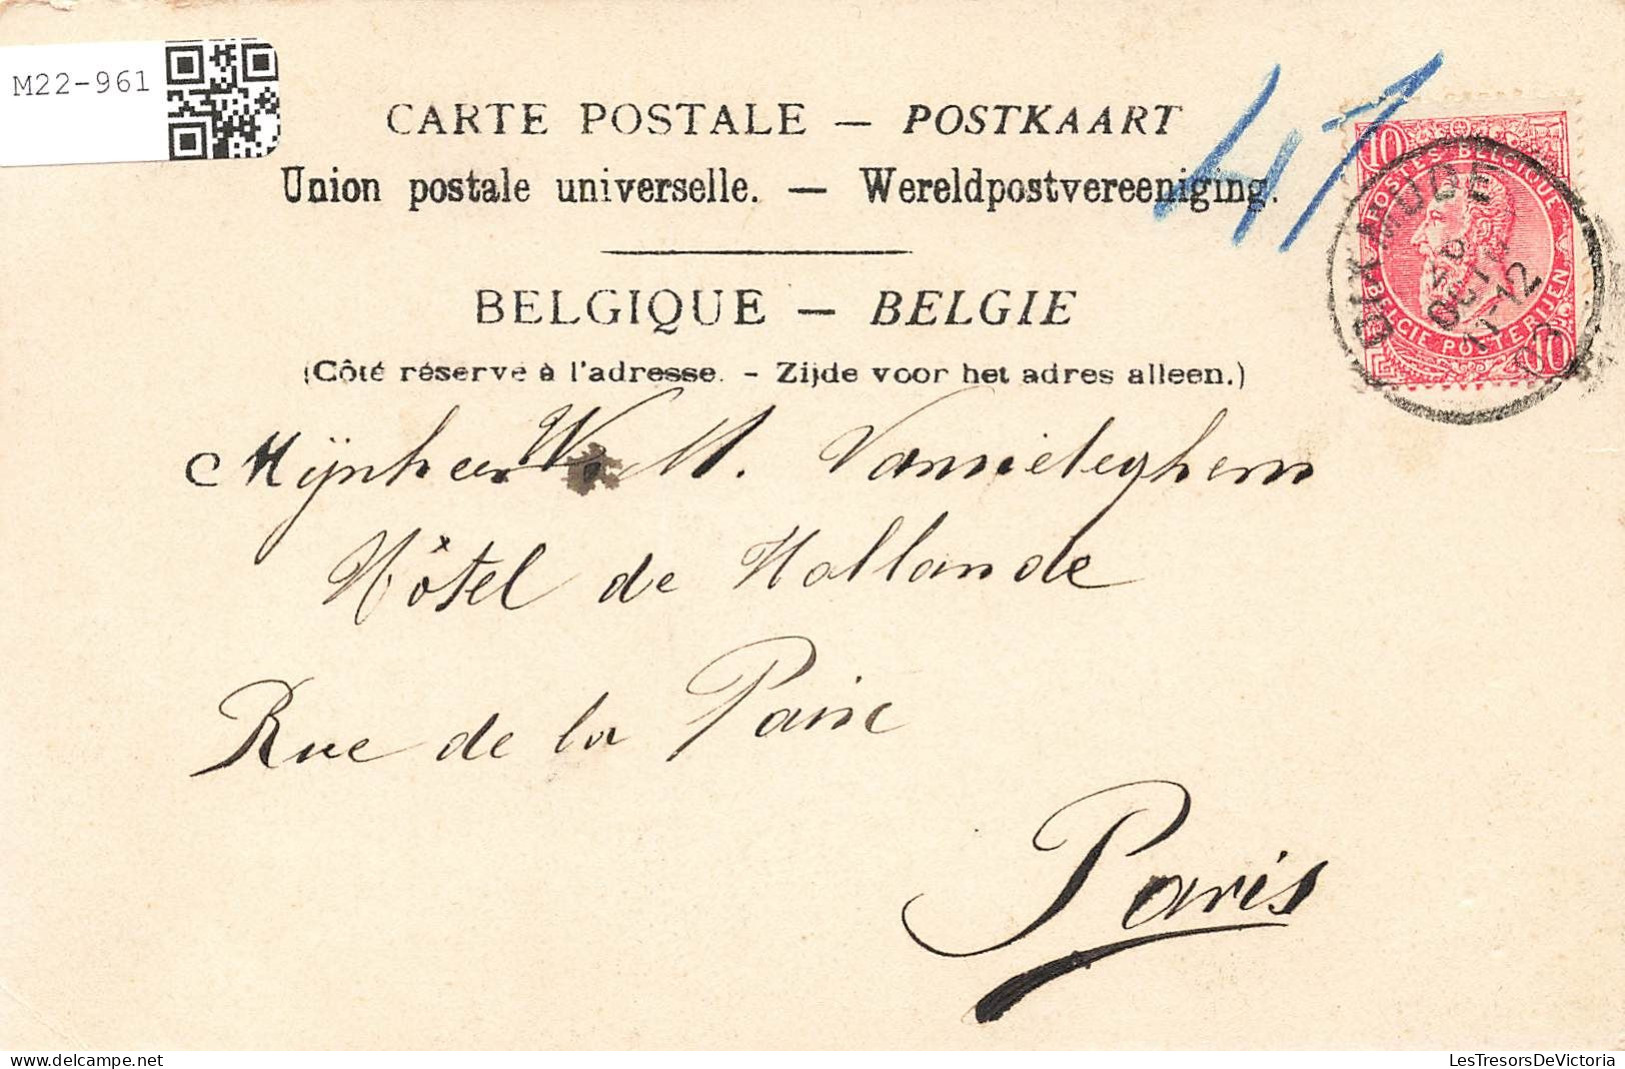 M22-961
CARTE POSTALE — POSTKAART
Union postale universelle. — Wereldpostvereeniging.
BELGIQUE — BELGIE
(Côté réservé à l'adresse. - Zijde voor het adres alleen.)
47
10
POSTES BELGIQUE
BELGIE POSTERIJEN
10
DIXMUDE
OCT
11-12
Mijnheer W. M. Vannieleghem
Hôtel de Hollande
Rue de la Paix
Paris
LesTresorsDeVictoria